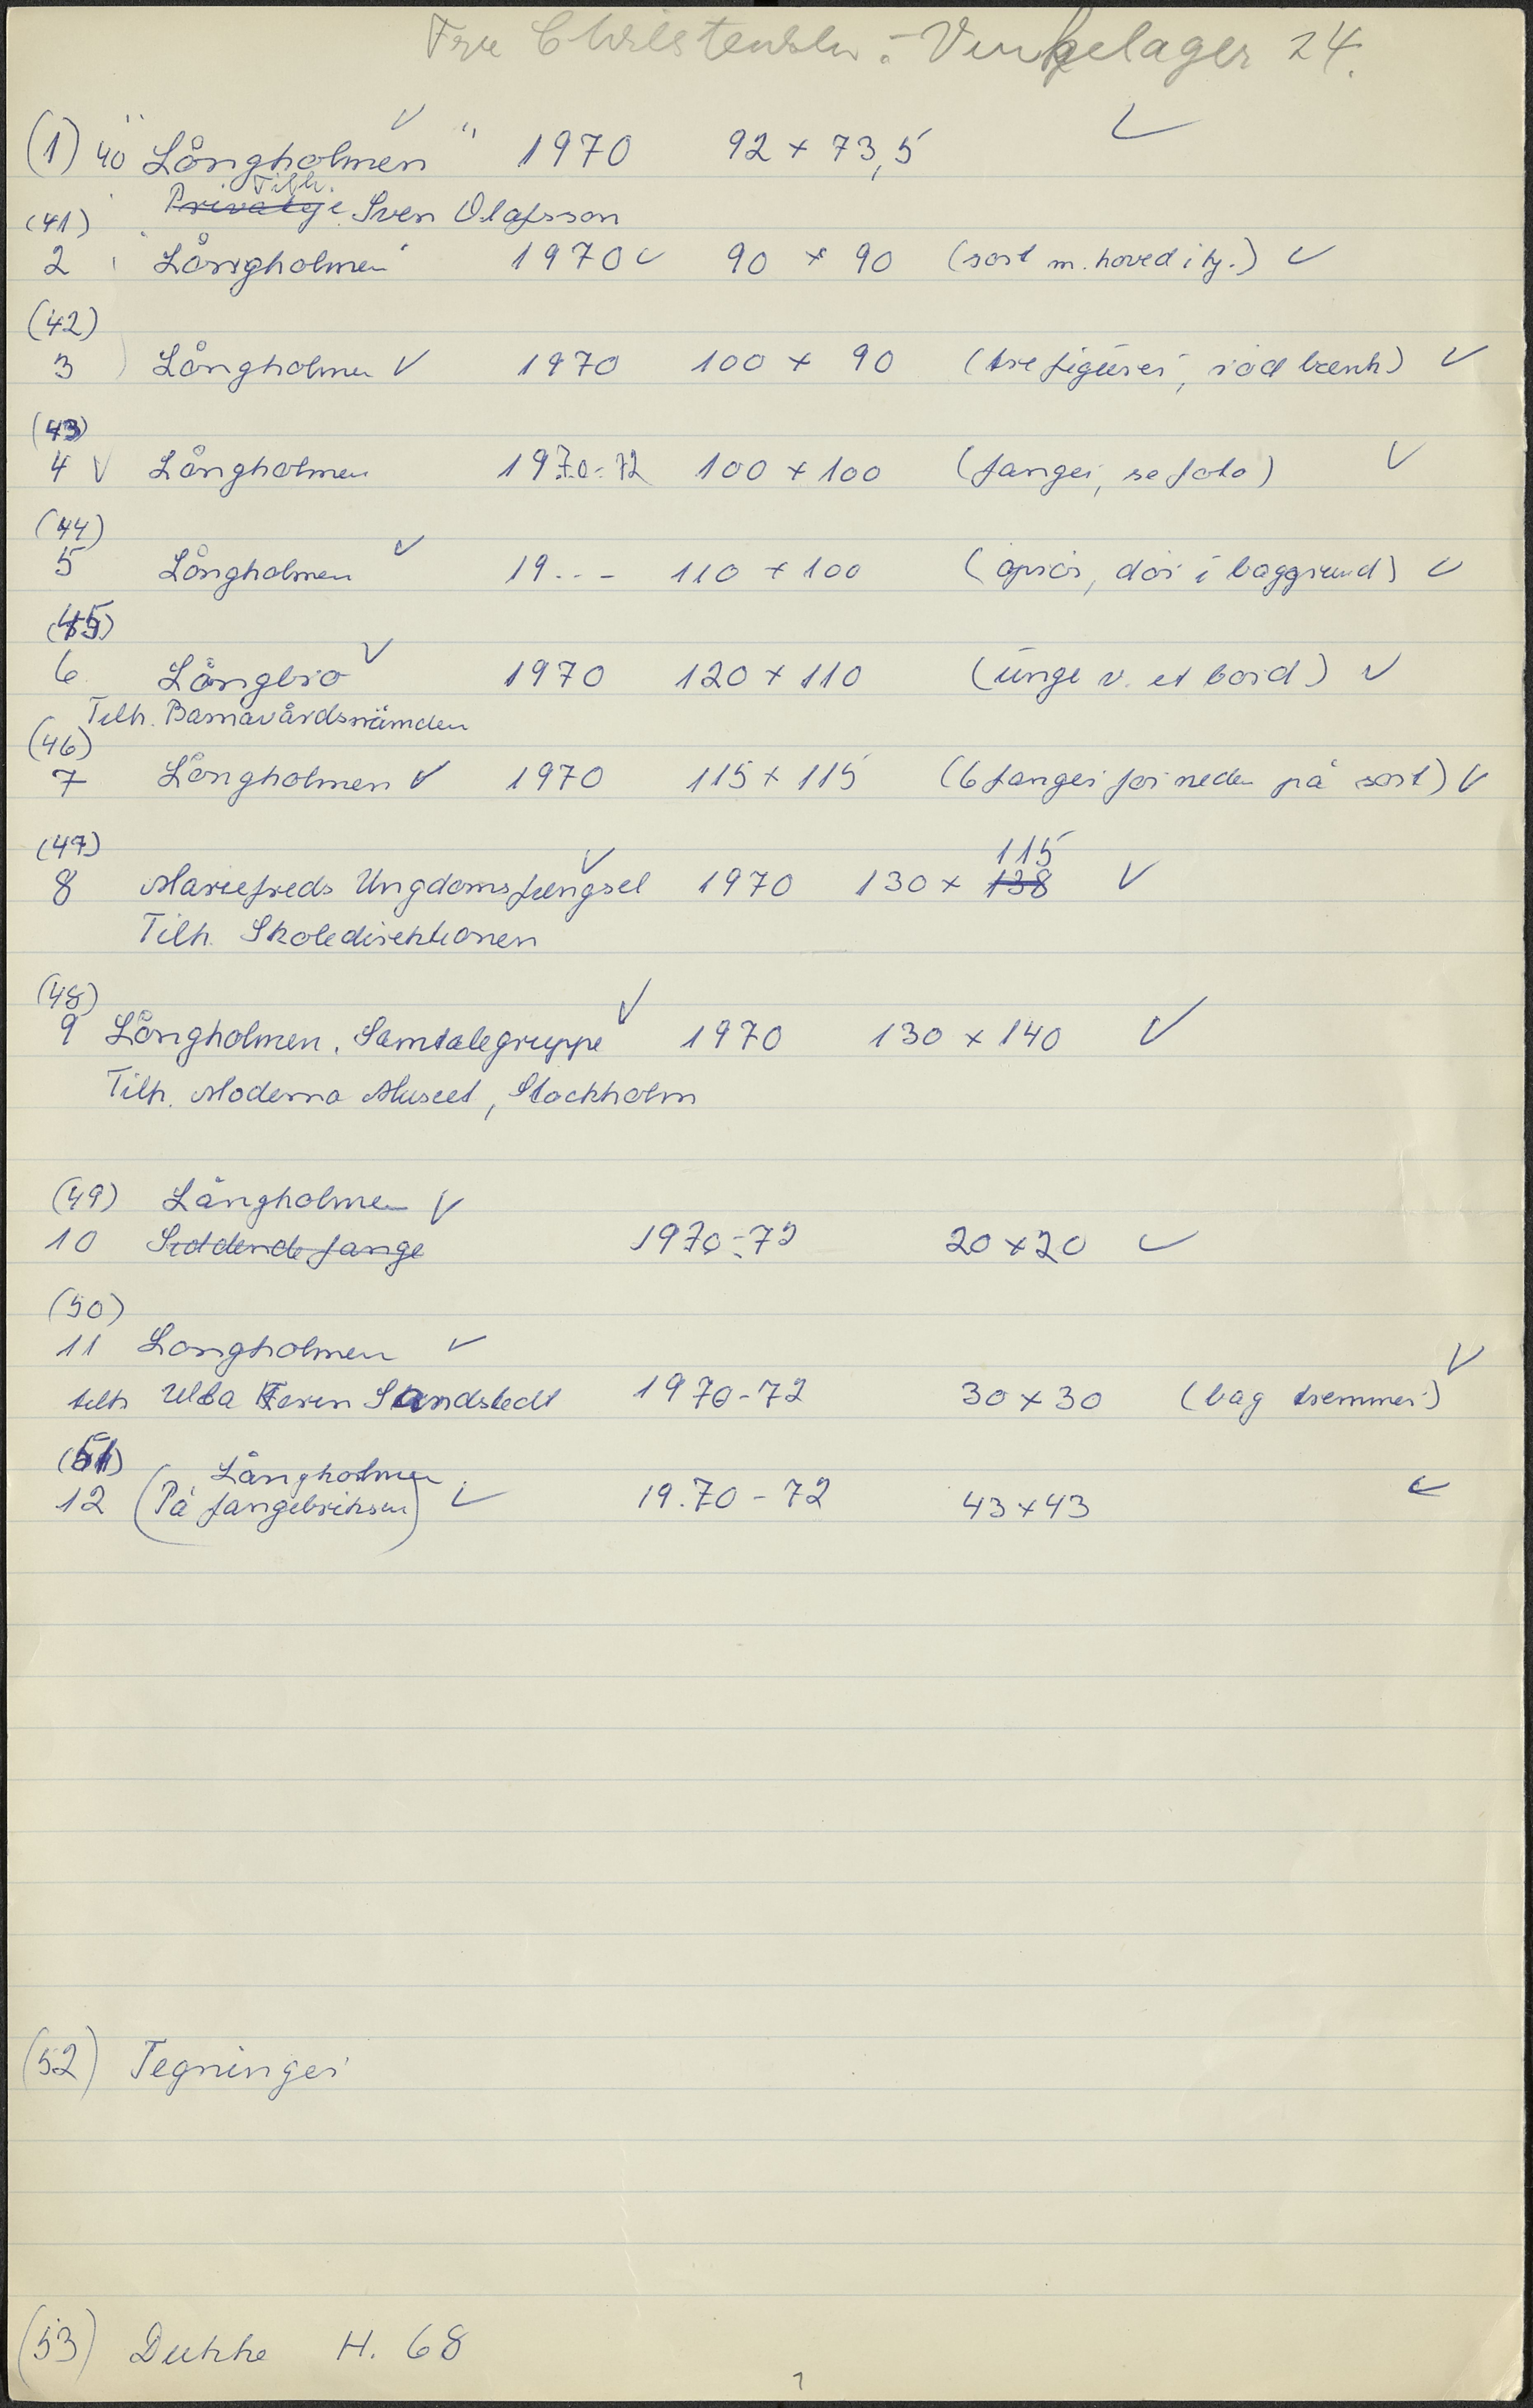 Fru Christensen: Vinkelager 24.
(1) 40 "Långholmen" ✓ 1970 92 x 73,5 ✓
Tilh.
~~Privateje~~ Sven Olafsson
(41)
2 "Långholmen" 1970 ✓ 90 x 90 (sort m. hoved i hj.) ✓
(42)
3 Långholmen ✓ 1970 100 x 90 (tre figurer, rød bænk) ✓
(43)
4 ✓ Långholmen 1970-72 100 x 100 (fanger, se foto) ✓
(44)
5 Långholmen ✓ 19... - 110 x 100 (oprør, dør i baggrund) ✓
(45)
6 Långbro ✓ 1970 120 x 110 (unge v. et bord) ✓
Tilh. Barnavårdsnämden
(46)
7 Långholmen ✓ 1970 115 x 115 (6 fanger forneden på sort) ✓
(47) 115
8 Mariefreds Ungdomsfængsel ✓ 1970 130 x ~~138~~ ✓
Tilh. Skoledirektionen
(48)
9 Långholmen. Samtalegruppe ✓ 1970 130 x 140 ✓
Tilh. Moderna Museet, Stockholm
(49) Långholmen ✓
10 ~~Siddende fange~~ 1970-72 20 x 20 ✓
(50)
11 Långholmen ✓ ✓
tilh Ulla Sandstedt 1970-72 30 x 30 (bag tremmer)
(51) Långholmen
12 (På fangebriksen) ✓ 19.70-72 43 x 43 ✓
(52) Tegninger
(53) Dukke H. 68
1